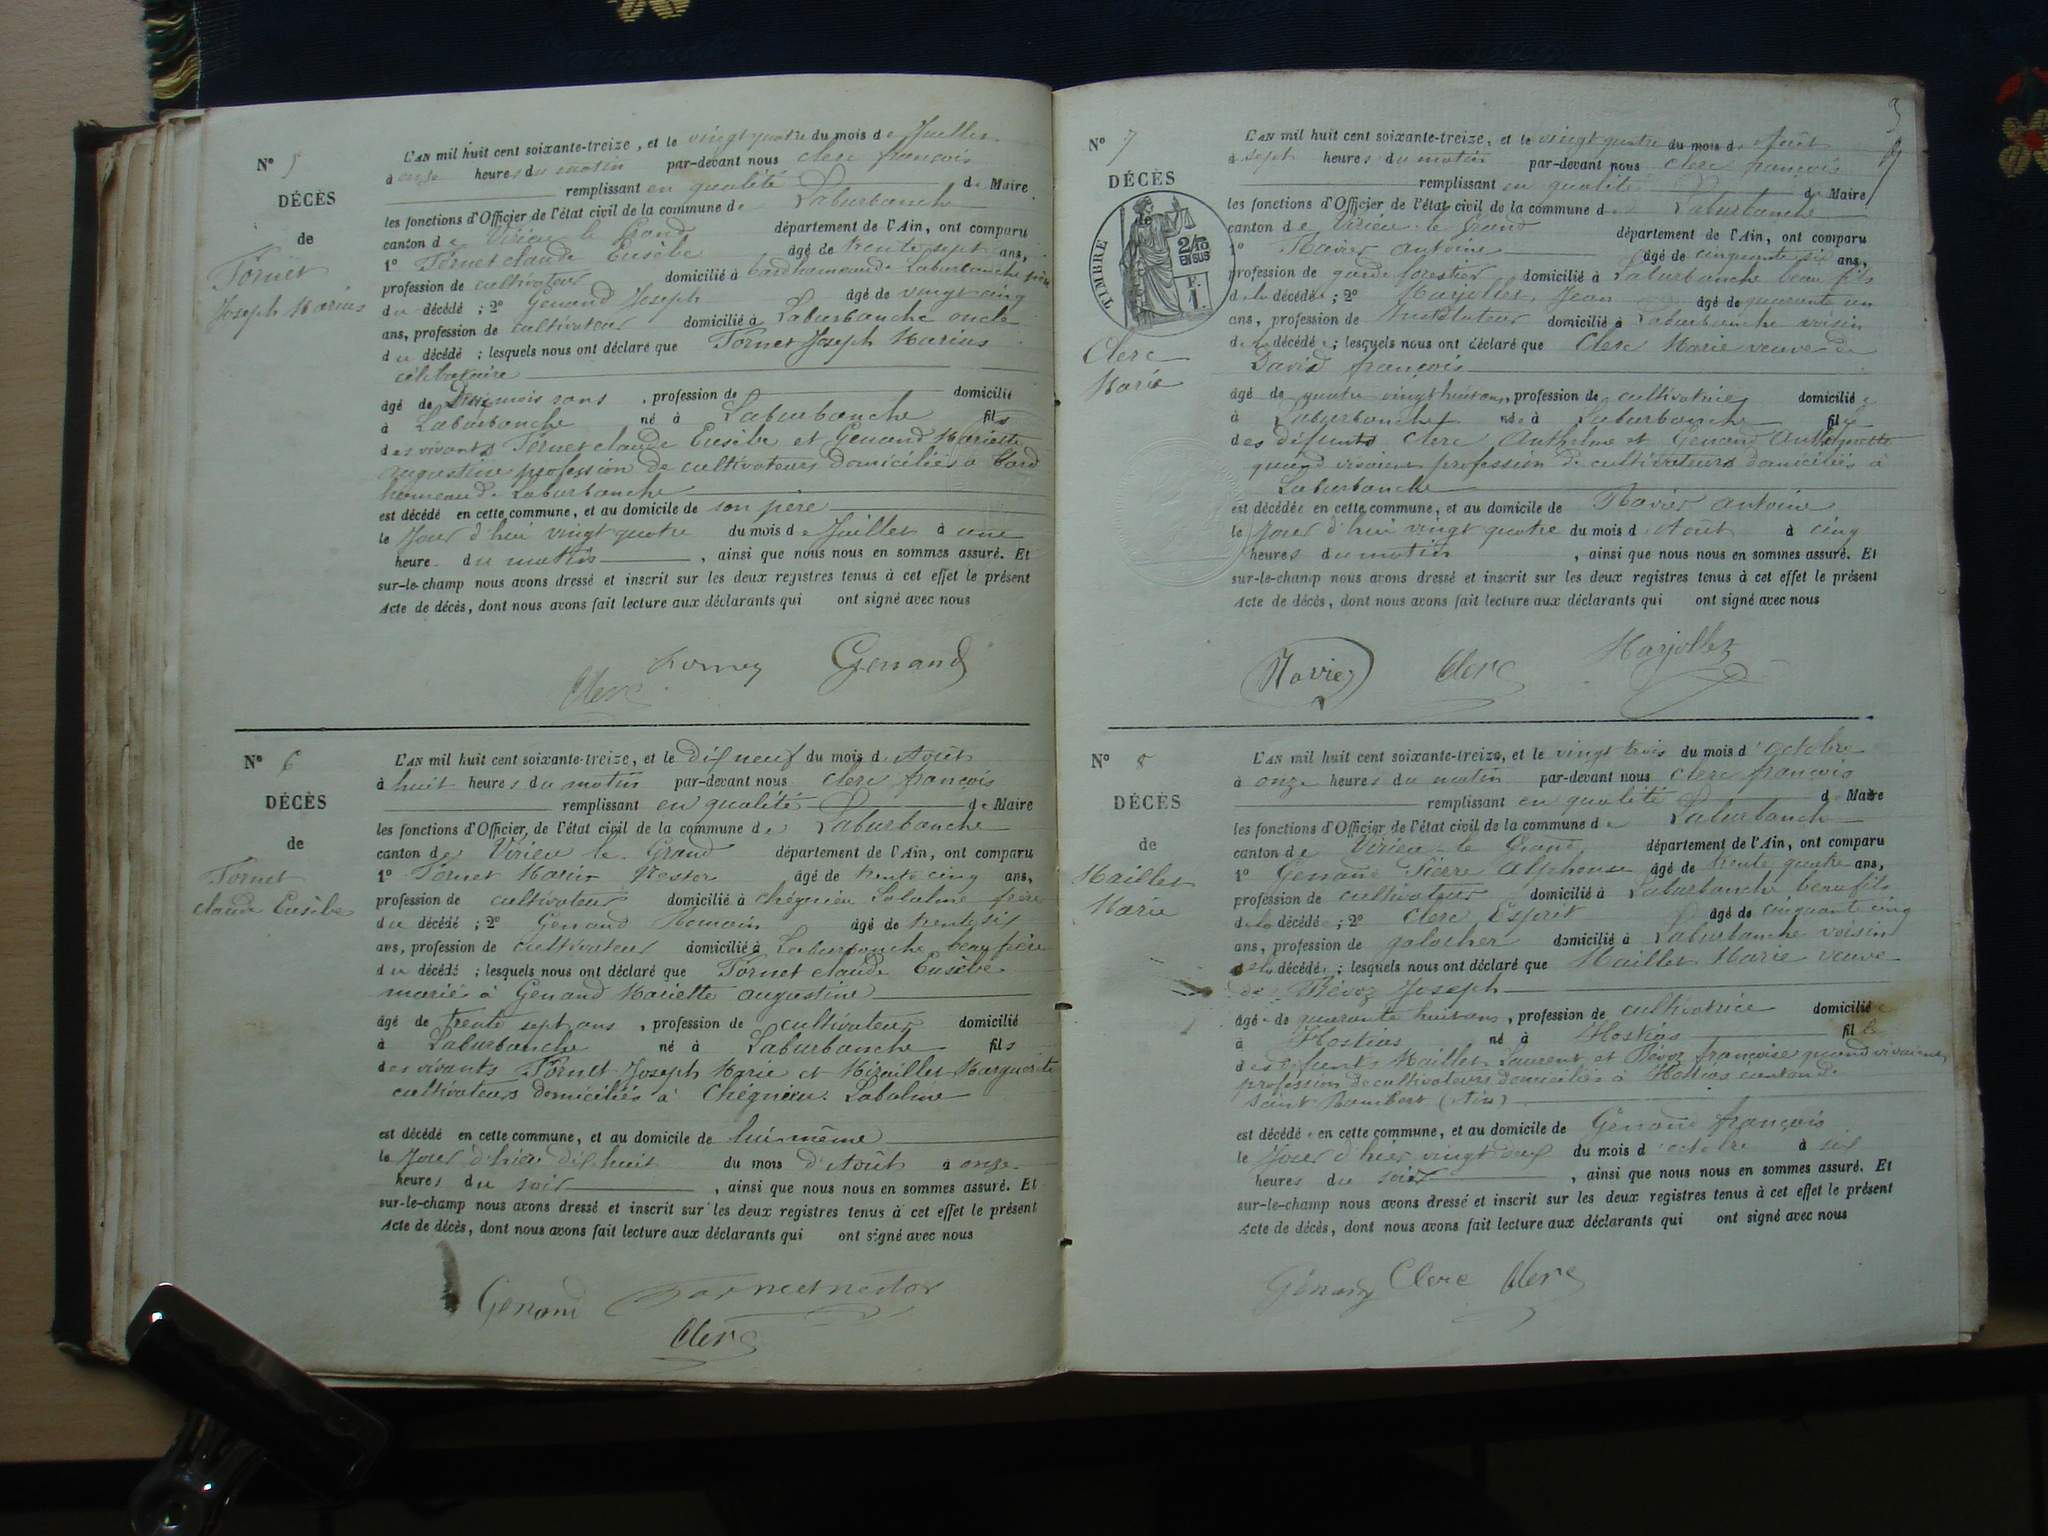 N° 5
DÉCÈS
de
Tornet
Joseph Marius
L'AN mil huit cent soixante-treize, et le vingt quatre du mois de Juillet
à onze heures du matin par-devant nous Clerc françois
remplissant en qualité de Maire
les fonctions d'Officier de l'état civil de la commune de Laburbanche
canton de Virieu le Grand département de l'Ain, ont comparu
1° Tornet claude Eusèbe âgé de trente sept ans,
profession de cultivateur domicilié à hameau de Laburbanche père
du décédé ; 2° Genand Joseph âgé de vingt cinq
ans, profession de cultivateur domicilié à Laburbanche oncle
du décédé ; lesquels nous ont déclaré que Tornet Joseph Marius
célibataire
âgé de mois sans , profession de domicilié
à Laburbanche né à Laburbanche fils
des vivants Tornet claude Eusèbe et Genand Mariette
augustine profession de cultivateurs domiciliés à
hameau de Laburbanche
est décédé en cette commune, et au domicile de son père
le Jour d'hui vingt quatre du mois de Juillet à une
heure du matin , ainsi que nous nous en sommes assuré. Et
sur-le-champ nous avons dressé et inscrit sur les deux registres tenus à cet effet le présent
Acte de décès, dont nous avons fait lecture aux déclarants qui ont signé avec nous
Clerc Genand
N° 6
DÉCÈS
de
Tornet
claude Eusèbe
L'AN mil huit cent soixante-treize, et le dix neuf du mois d Août
à huit heures du matin par-devant nous Clerc françois
remplissant en qualité de Maire
les fonctions d'Officier de l'état civil de la commune de Laburbanche
canton de Virieu le Grand département de l'Ain, ont comparu
1° Tornet Marie Nestor âgé de trente cinq ans,
profession de cultivateur domicilié à chégnieu Labalme frère
du décédé ; 2° Genand Romain âgé de trente six
ans, profession de cultivateur domicilié à Laburbanche beau frère
du décédé ; lesquels nous ont déclaré que Tornet claude Eusèbe
marié à Genand Mariette augustine
âgé de trente sept ans , profession de cultivateur domicilié
à Laburbanche né à Laburbanche fils
des vivants Tornet Joseph Marie et Miraillet Marguerite
cultivateurs domiciliés à Chégnieu Labalme
est décédé en cette commune, et au domicile de lui-même
le Jour d'hier dix huit du mois d'Août à onze
heures du soir , ainsi que nous nous en sommes assuré. Et
sur-le-champ nous avons dressé et inscrit sur les deux registres tenus à cet effet le présent
Acte de décès, dont nous avons fait lecture aux déclarants qui ont signé avec nous
Genand Tornet nestor
Clerc
N° 7
DÉCÈS
de
TIMBRE
2/10 EN SUS
F. 1.
Clerc
Marie
L'AN mil huit cent soixante-treize, et le vingt quatre du mois d Août
à sept heures du matin par-devant nous Clerc françois
remplissant en qualité d Maire
les fonctions d'Officier de l'état civil de la commune d Laburbanche
canton de Virieu le Grand département de l'Ain, ont comparu
1° Ravier antoine âgé de cinquante six ans,
profession de garde forestier domicilié à Laburbanche beau fils
de la décédée ; 2° Marjollet Jean âgé de quarante un
ans, profession de Instituteur domicilié à Laburbanche voisin
de la décédée ; lesquels nous ont déclaré que Clerc Marie veuve de
David françois
âgé de quatre vingt huit ans, profession de cultivatrice domiciliée
à Laburbanche née à Laburbanche fille
des défunts Clerc Anthelme et Genand
quand vivaient profession de cultivateurs domiciliés à
Laburbanche
est décédée en cette commune, et au domicile de Ravier antoine
le Jour d'hui vingt quatre du mois d Août à cinq
heures du matin , ainsi que nous nous en sommes assuré. Et
sur-le-champ nous avons dressé et inscrit sur les deux registres tenus à cet effet le présent
Acte de décès, dont nous avons fait lecture aux déclarants qui ont signé avec nous
Ravier Clerc Marjollet
N° 8
DÉCÈS
de
Maillet
Marie
L'AN mil huit cent soixante-treize, et le vingt trois du mois d'octobre
à onze heures du matin par-devant nous Clerc françois
remplissant en qualité d Maire
les fonctions d'Officier de l'état civil de la commune de Laburbanche
canton de Virieu le Grand département de l'Ain, ont comparu
1° Genand Pierre Alphonse âgé de trente quatre ans,
profession de cultivateur domicilié à Laburbanche beaufils
de la décédée ; 2° Clerc Esprit âgé de cinquante cinq
ans, profession de galocher domicilié à Laburbanche voisin
de la décédée ; lesquels nous ont déclaré que Maillet Marie veuve
de Bévoz Joseph
âgée de quarante huit ans, profession de cultivatrice domicilié
à Hostias né à Hostias fille
des défunts Maillet Laurent et Bévoz françoise quand vivaient
profession de cultivateurs domiciliés à Hostias canton de
Saint Rambert (Ain)
est décédée en cette commune, et au domicile de Genand françois
le Jour d'hier vingt deux du mois d'octobre à six
heures du soir , ainsi que nous nous en sommes assuré. Et
sur-le-champ nous avons dressé et inscrit sur les deux registres tenus à cet effet le présent
Acte de décès, dont nous avons fait lecture aux déclarants qui ont signé avec nous
Genand Clerc Clerc